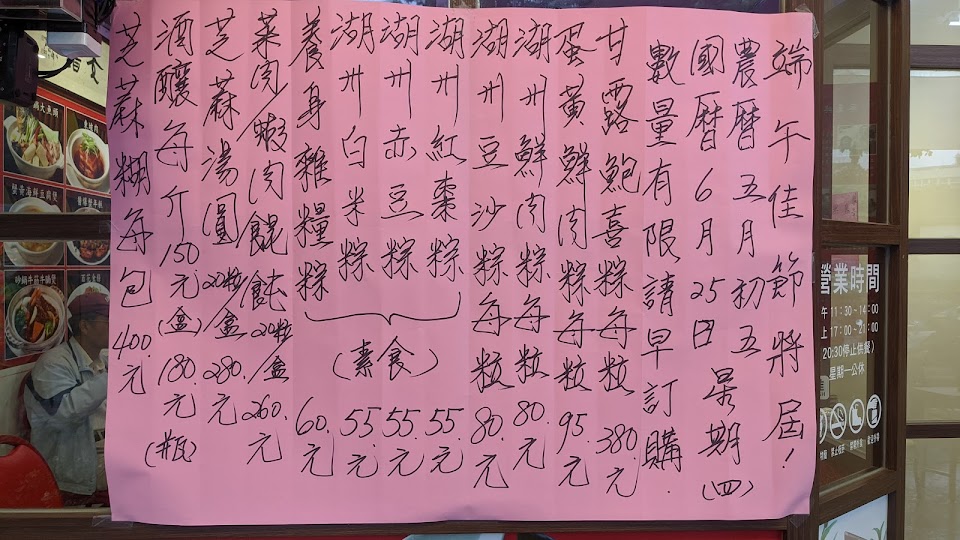 端午佳節將屆!
農曆五月初五
國曆6月25日星期(四)
數量有限請早訂購.
甘露鮑喜粽每粒380元
蛋黃鮮肉粽每粒95元
湖州鮮肉粽每粒80元
湖州豆沙粽每粒80元
湖州紅棗粽55元
湖州赤豆粽55元
湖州白米粽55元
養身雜糧粽60元
(素食)
菜肉/嫩肉餛飩20粒/盒260元
芝蔴湯圓20粒/盒280元
酒釀每斤150元(盒)180元(瓶)
芝蔴糊每包400元
營業時間
午11:30~14:00
(20:30停止供餐)
星期一公休